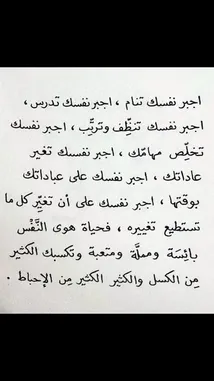 اجبر نفسك تنام ، اجبر نفسك تدرس،
اجبر نفسك تنظِّف وترتِّب ، اجبر نفسك
تخلِّص مهامّك ، اجبر نفسك تغير
عاداتك ، اجبر نفسك على عباداتك
بوقتها ، اجبر نفسك على أن تغيِّر كل ما
تستطيع تغييره ، فحياة هوى النَّفْس
بائِسَة ومملَّة ومتعبة وتكسبك الكثير
مِن الكسل والكثير الكثير مِن الإحباط .